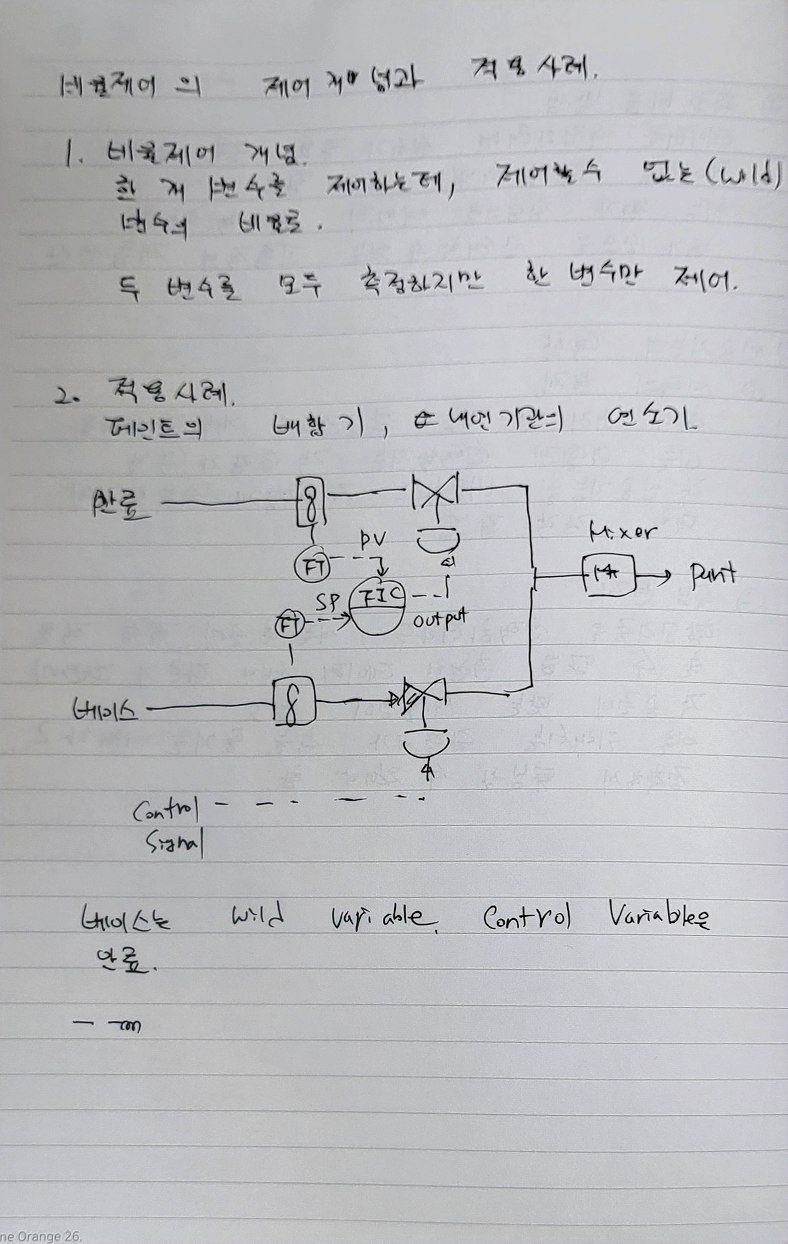 비율제어의 제어 개념과 적용사례.
1. 비율제어 개념.
한 개 변수를 제어하는데, 제어할수 없는(wild)
변수의 비율로.
두 변수를 모두 측정하지만 한 변수만 제어.
2. 적용사례.
페인트의 배합기, 내연기관의 연소기
안료
PV
FT
Mixer
M
Paint
SP
FIC
FT
output
베이스
Control
Signal
베이스는 wild variable. Control Variable은
안료.
ne Orange 26.